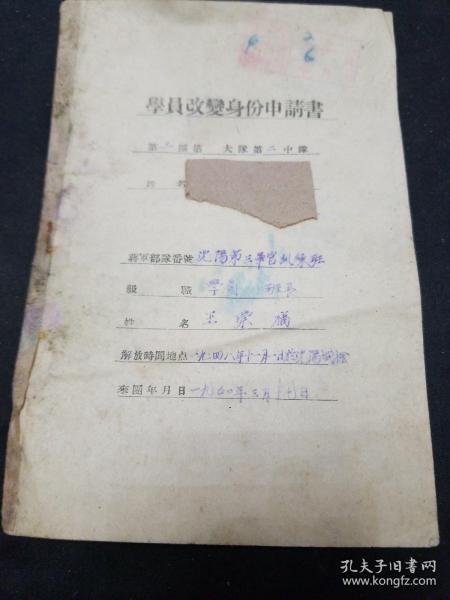 學員改變身份申請書
第 團第 大隊第二中隊
姓
蔣軍部隊番號 沈陽第三軍官訓練班
級 職 學員 班長
姓 名 王
解放時間地点 一九四八年十一月
來團年月日 一九五〇年三月十
孔夫子旧书网
www.kongfz.com